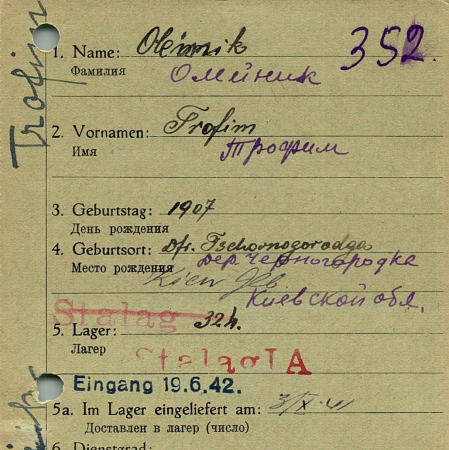 Trofim
352.
1. Name: Oleinik
Фамилия Олейник
2. Vornamen: Trofim
Имя Трофим
3. Geburtstag: 1907
День рождения
4. Geburtsort: Dfr. Tschornogorodga
Место рождения дер Черногородка
Kiew Геб.
Киевской обл.
Stalag
5. Lager: 324.
Лагер Stalag IA
Eingang 19.6.42.
5a. Im Lager eingeliefert am: 3/X-41
Доставлен в лагер (число)
6. Dienstgrad: